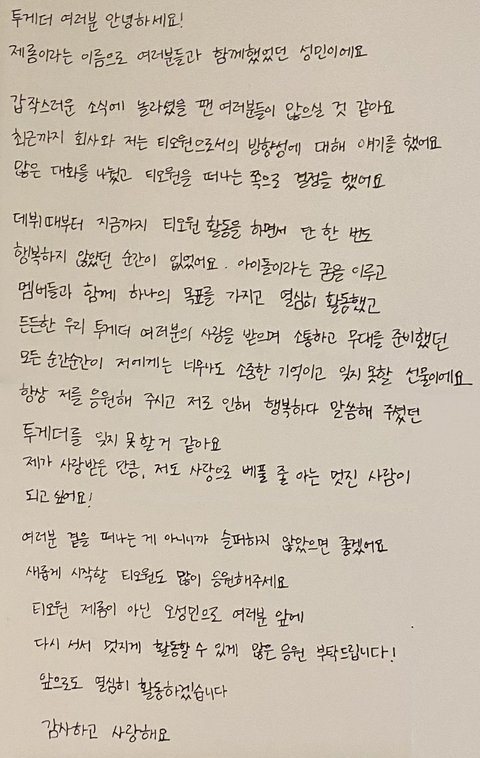 투게더 여러분 안녕하세요!
제롬이라는 이름으로 여러분들과 함께했었던 성민이에요
갑작스러운 소식에 놀라셨을 팬 여러분들이 많으실 것 같아요
최근까지 회사와 저는 티오원으로서의 방향성에 대해 얘기를 했어요
많은 대화를 나눴고 티오원을 떠나는 쪽으로 결정을 했어요
데뷔 때부터 지금까지 티오원 활동을 하면서 단 한 번도
행복하지 않았던 순간이 없었어요. 아이돌이라는 꿈을 이루고
멤버들과 함께 하나의 목표를 가지고 열심히 활동했고
든든한 우리 투게더 여러분의 사랑을 받으며 소통하고 무대를 준비했던
모든 순간순간이 저에게는 너무나도 소중한 기억이고 잊지 못할 선물이에요
항상 저를 응원해 주시고 저로 인해 행복하다 말씀해 주셨던
투게더를 잊지 못할 거 같아요
제가 사랑받은 만큼, 저도 사랑으로 베풀 줄 아는 멋진 사람이
되고 싶어요!
여러분 곁을 떠나는 게 아니니까 슬퍼하지 않았으면 좋겠어요
새롭게 시작할 티오원도 많이 응원해주세요
티오원 제롬이 아닌 오성민으로 여러분 앞에
다시 서서 멋지게 활동할 수 있게 많은 응원 부탁드립니다!
앞으로도 열심히 활동하겠습니다
감사하고 사랑해요